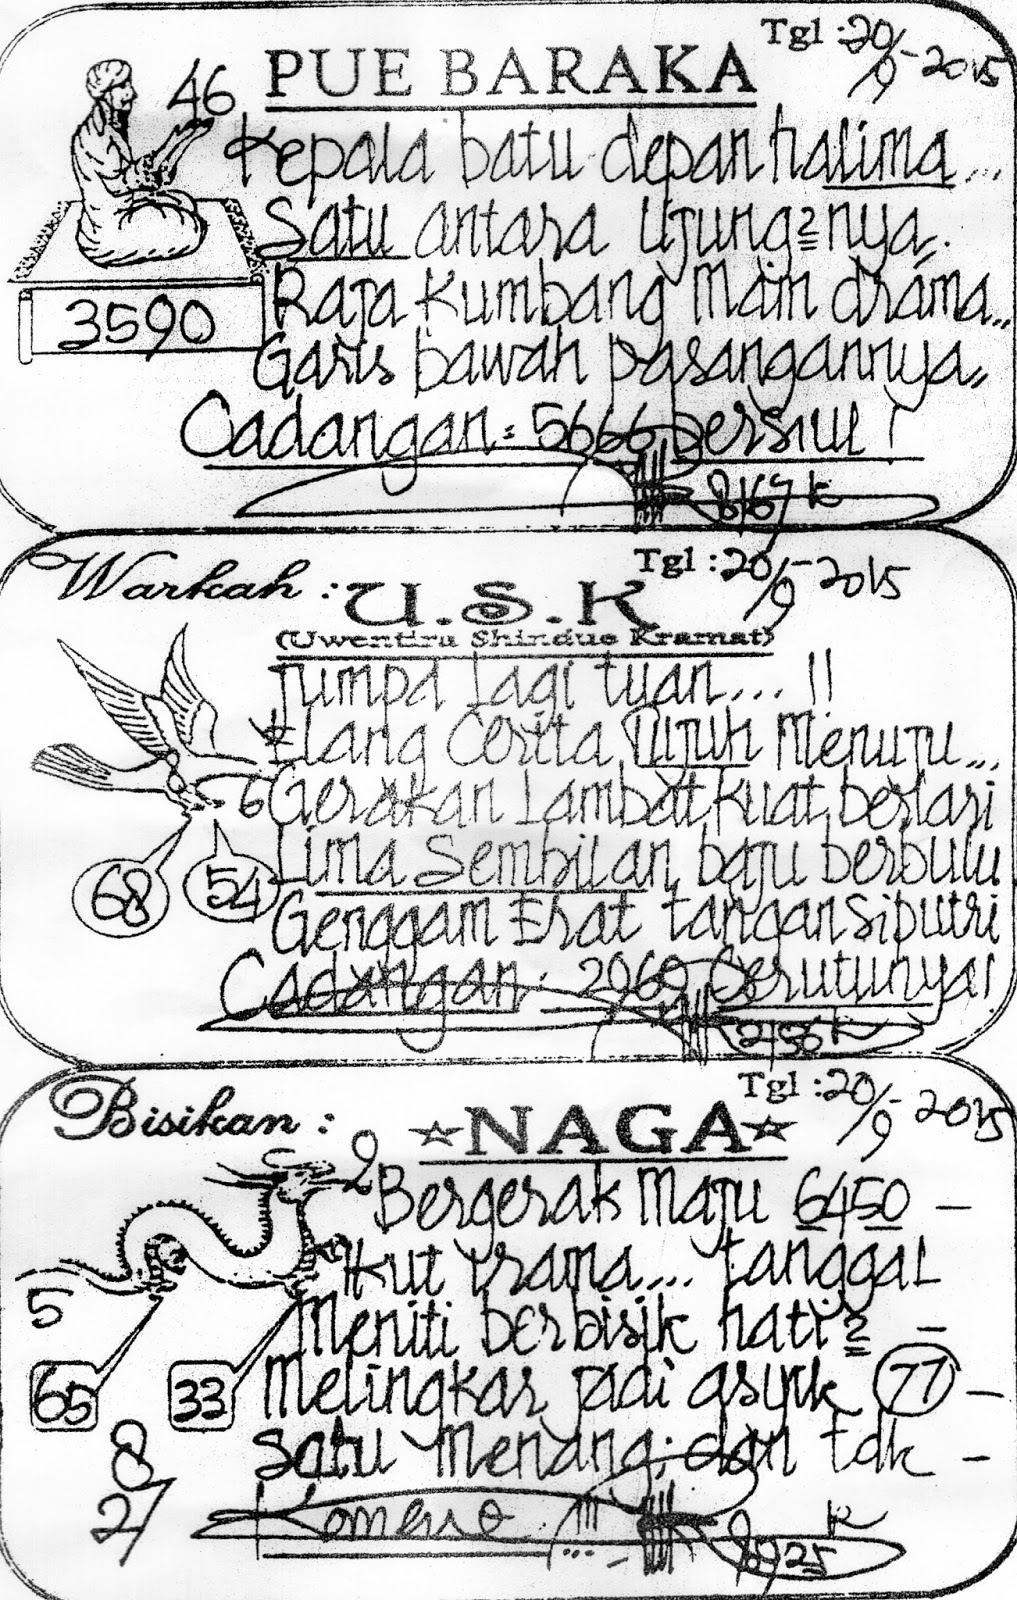 PUE BARAKA
Tgl : 20/9 - 2015
46
Kepala batu depan halima...
Satu antara Ujung2nya,.
Raja Kumbang main drama...
3590
Garis bawah pasangannya,,
Cadangan: 5666 bersiul !
8167 k
Warkah : U.S.K
Tgl : 20/9 - 2015
(Uwentira Shindue Kramat)
Jumpa Lagi tuan... !!
Elang Cerita Tujuh Menuju...
6
Gerakan Lambat kuat berlari
68
54
Lima Sembilan baju berbulu
Genggam Erat tangan siputri
Cadangan : 2960 Serutunya!
Bisikan : NAGA
Tgl : 20/9 - 2015
2
Bergerak Maju 6450 -
Ikut irama.... tanggal
5
Meniti berbisik hati2 -
65
33
Melingkar jadi asyik 77 -
8
Satu Menang, dan tdk -
27
!!!
k
25